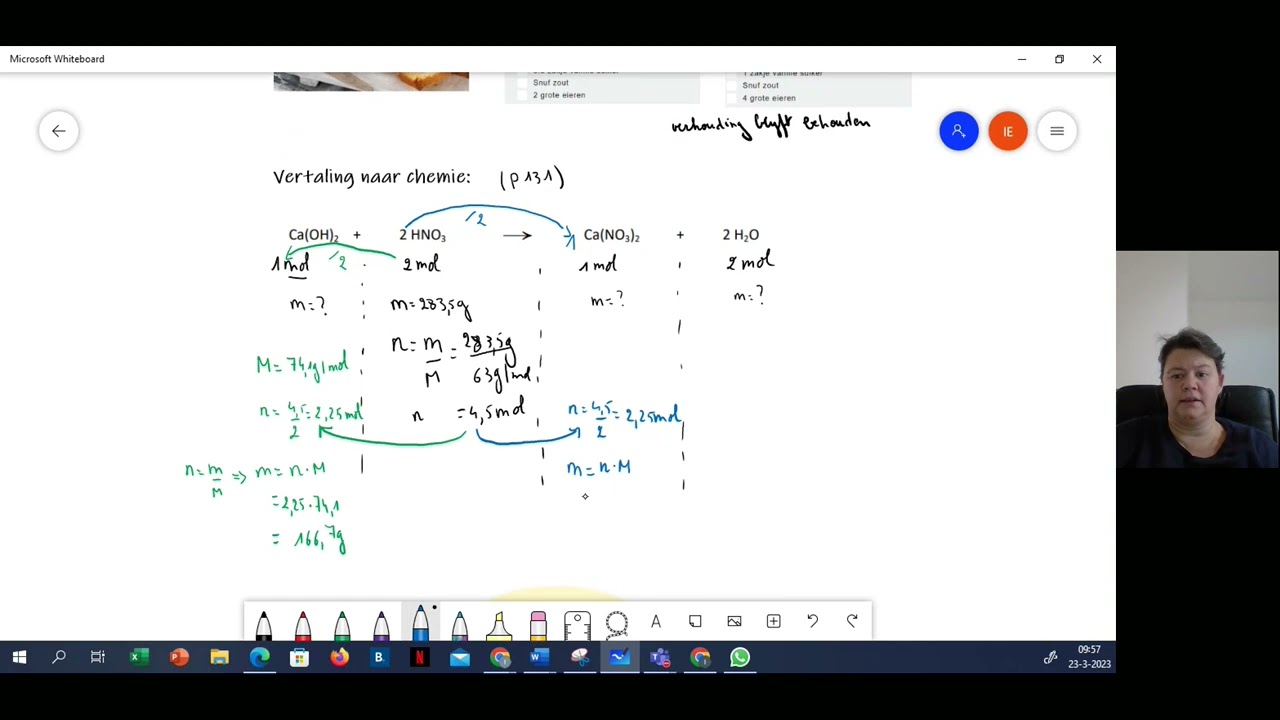 Microsoft Whiteboard
Snuf zout
2 grote eieren
1 zakje vanille suiker
Snuf zout
4 grote eieren
verhouding blijft behouden
IE
Vertaling naar chemie: (p 131)
/2
Ca(OH)₂ + 2 HNO₃ → Ca(NO₃)₂ + 2 H₂O
/2
1 mol 2 mol 1 mol 2 mol
m=? m=283,5g m=? m=?
n = m/M = 283,5g/63g/mol
M = 74,1g/mol
n = 4,5/2 = 2,25mol n = 4,5mol n = 4,5/2 = 2,25mol
n = m/M => m = n·M m = n·M
= 2,25·74,1
= 166,7g
A
B.
N
09:57
23-3-2023